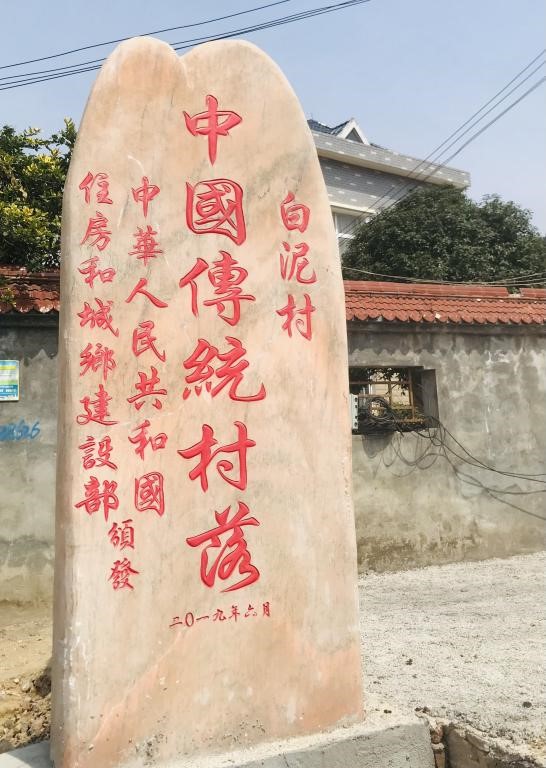 白泥村
中國傳統村落
中華人民共和國
住房和城鄉建設部
頒發
二〇一九年六月